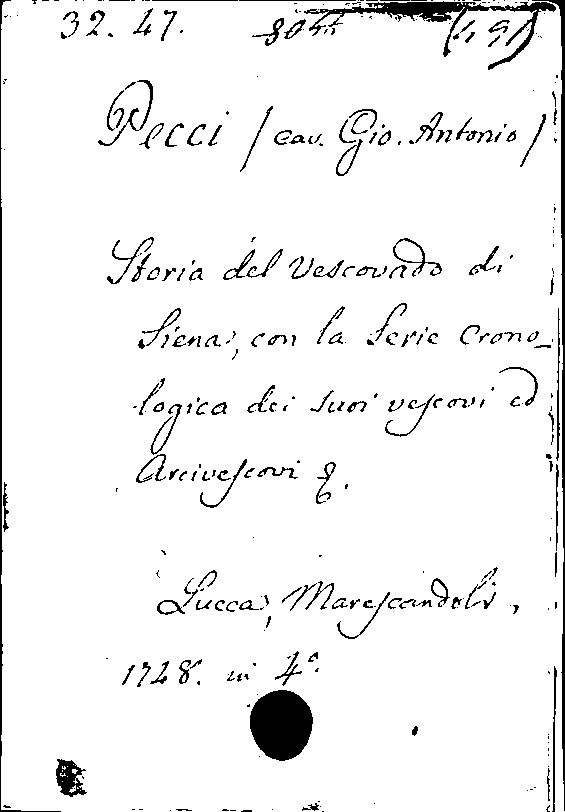 32. 47.
Pecci / cav. Gio. Antonio /
Storia del Vescovado di
Siena, con la Serie Crono_
logica dei suoi vescovi ed
Arcivescovi &.
Lucca, Marescandoli,
1748. in 4°.